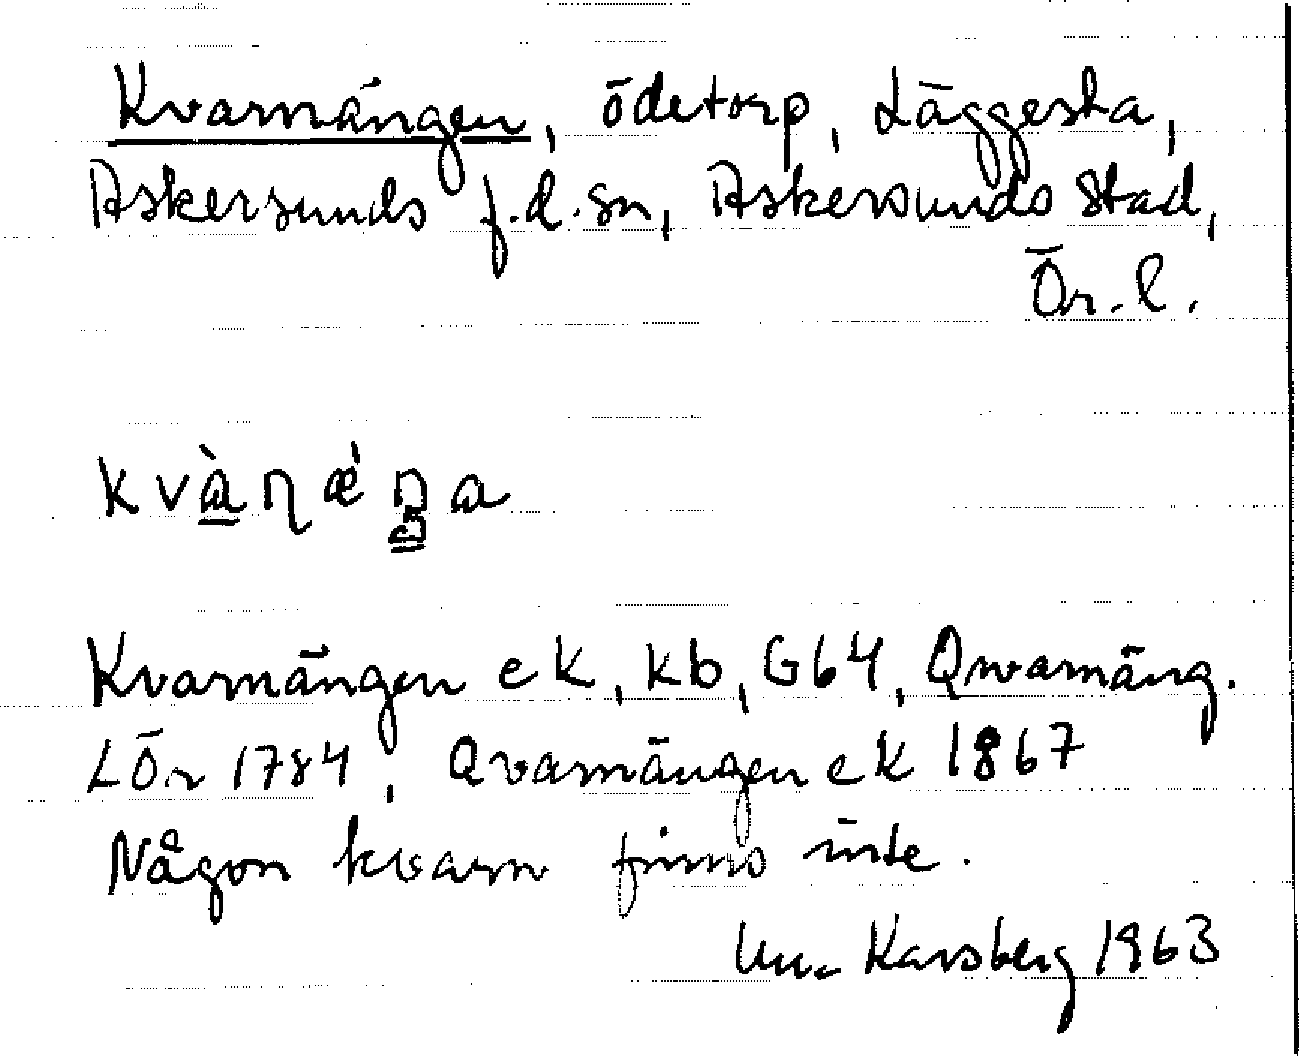 Kvarnängen, ödetorp, Läggesta,
Askersunds f.d. sn, Askersunds stad,
Ör. l.
kvàɳǽŋa
Kvarnängen ek, kb, G64, Qwarnäng.
LÖr 1784, Qvarnängen ek 1867
Någon kvarn finns inte.
Karsberg 1963